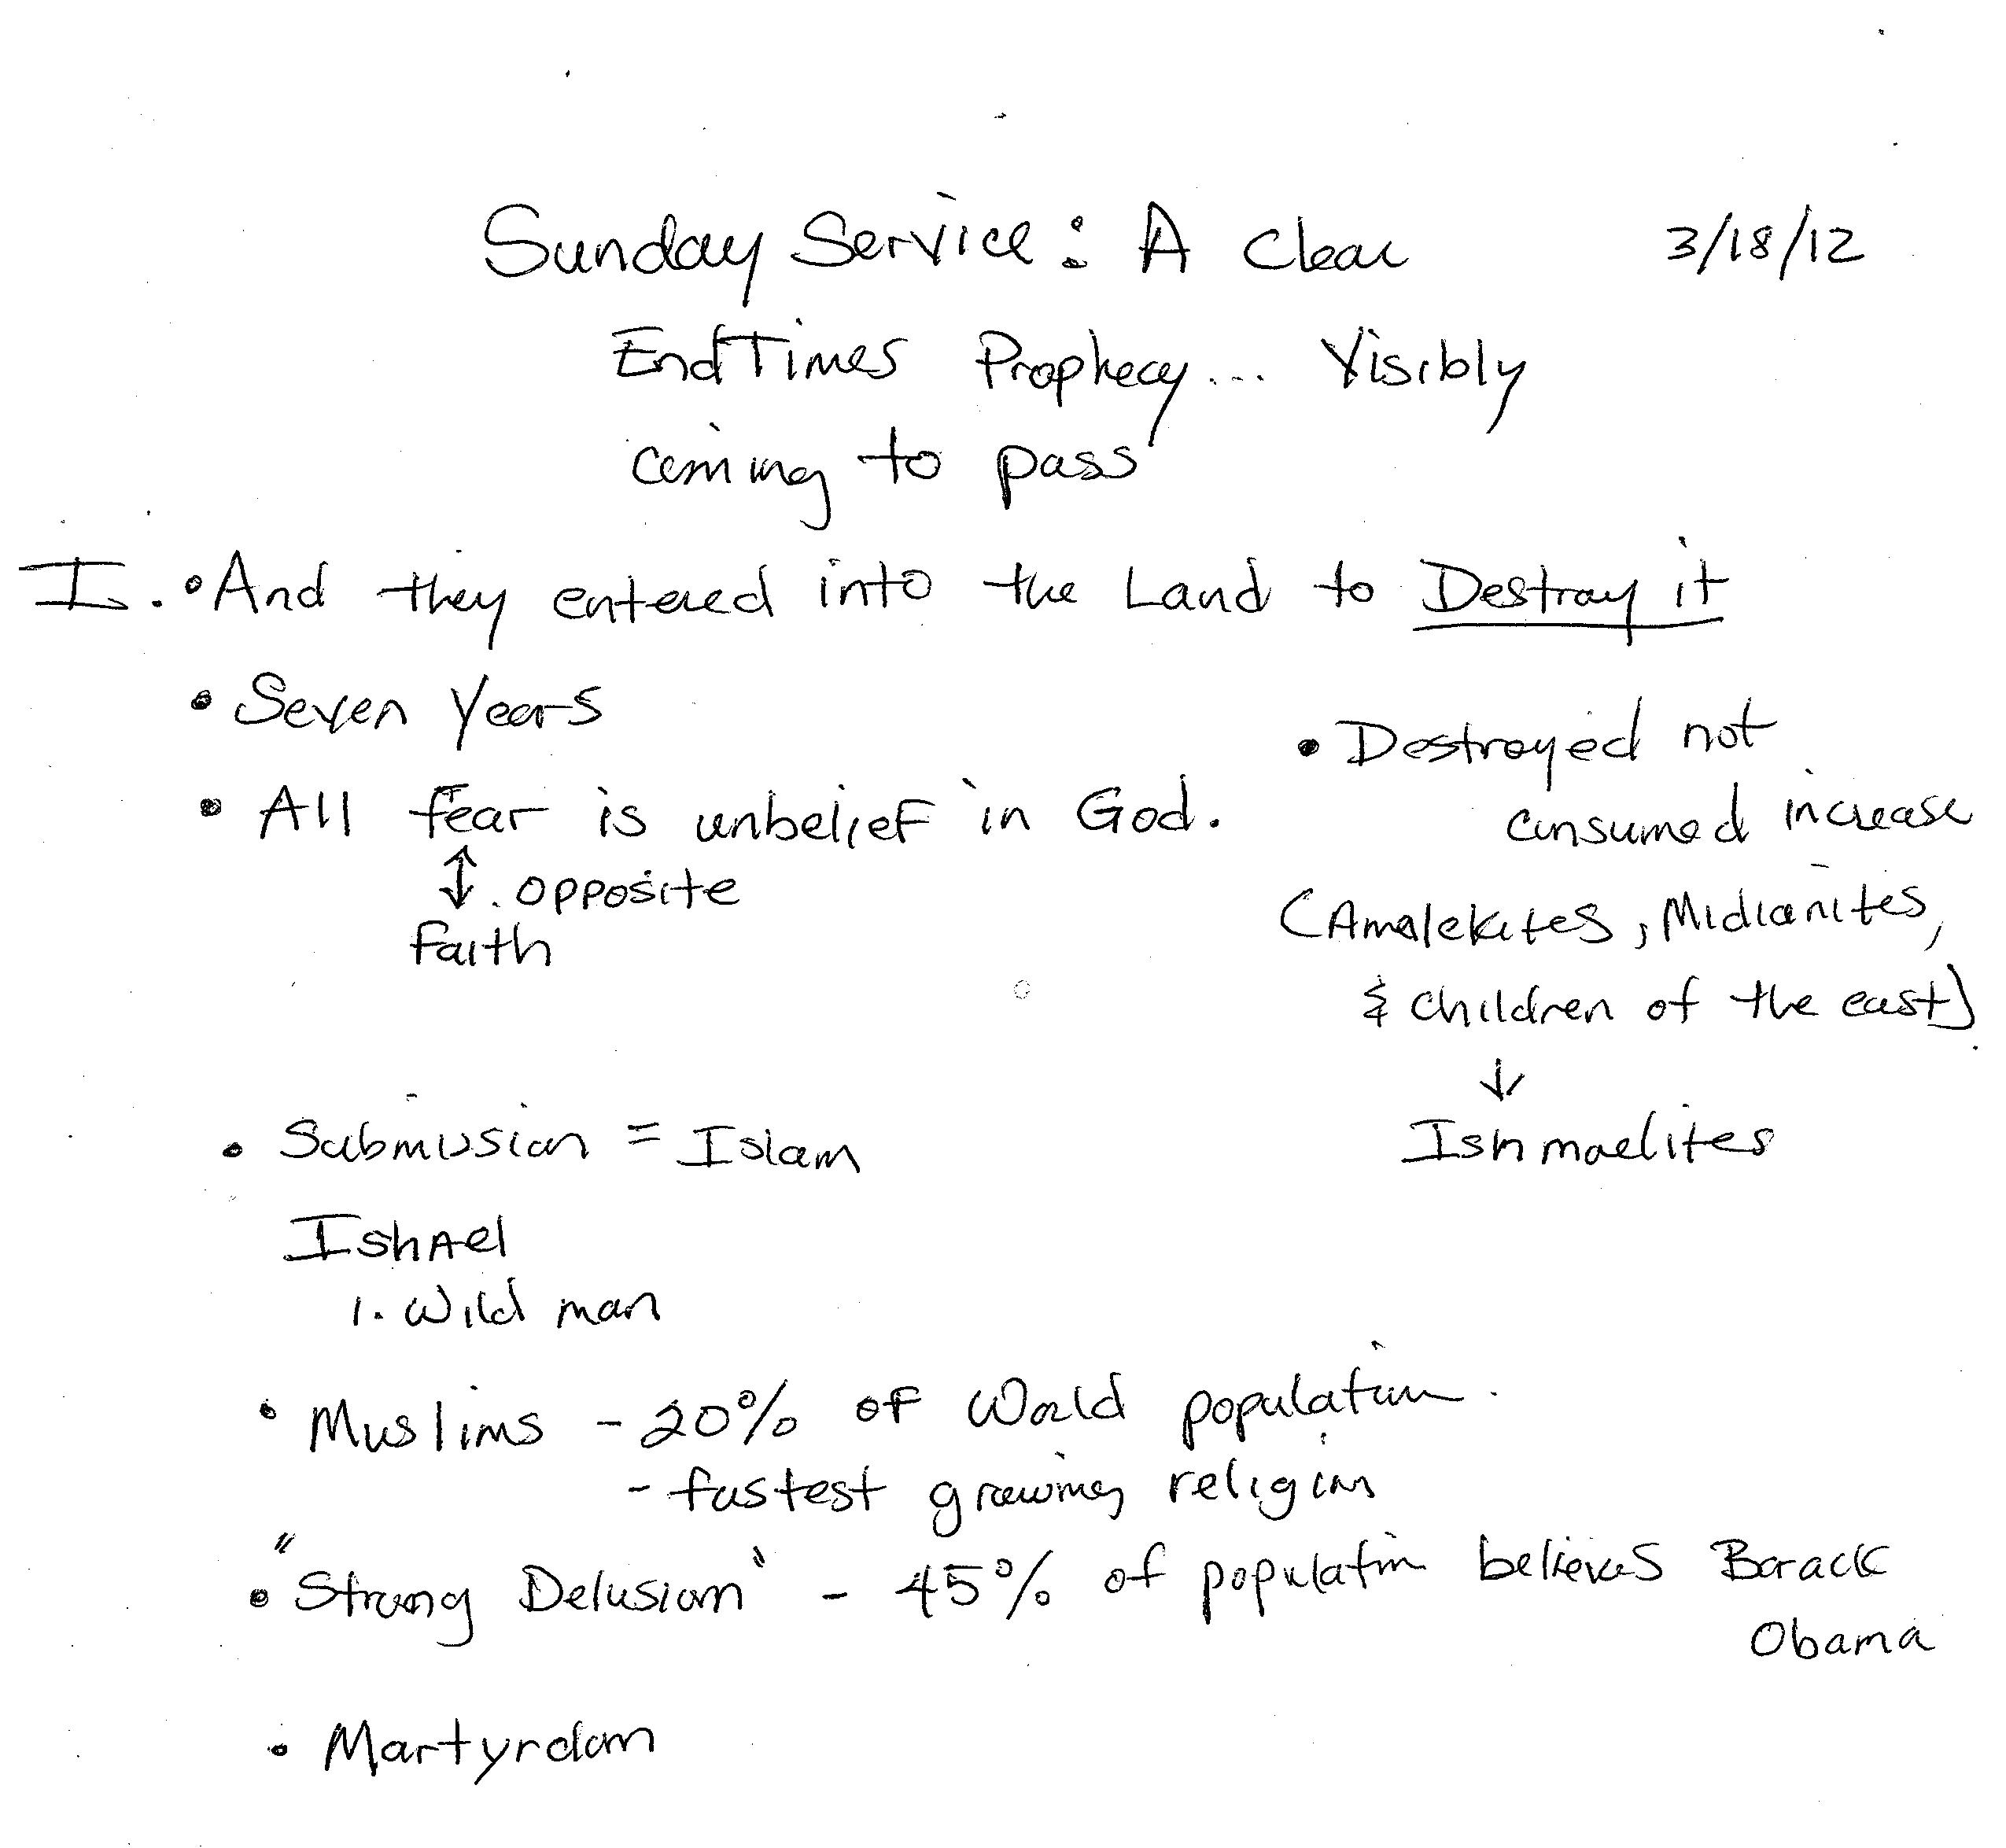 Sunday Service: A Clear 3/18/12
EndTimes Prophecy... Visibly
coming to pass
I. • And they entered into the Land to Destroy it
• Seven Years
• All fear is unbelief in God.
↕ opposite
faith
• Destroyed not
consumed increase
(Amalekites, Midianites,
& children of the east)
↓
Ishmaelites
• Submission = Islam
IshAel
1. Wild man
• Muslims - 20% of World population.
- fastest growing religion
• "Strong Delusion" - 45% of population believes Barack
Obama
• Martyrdom